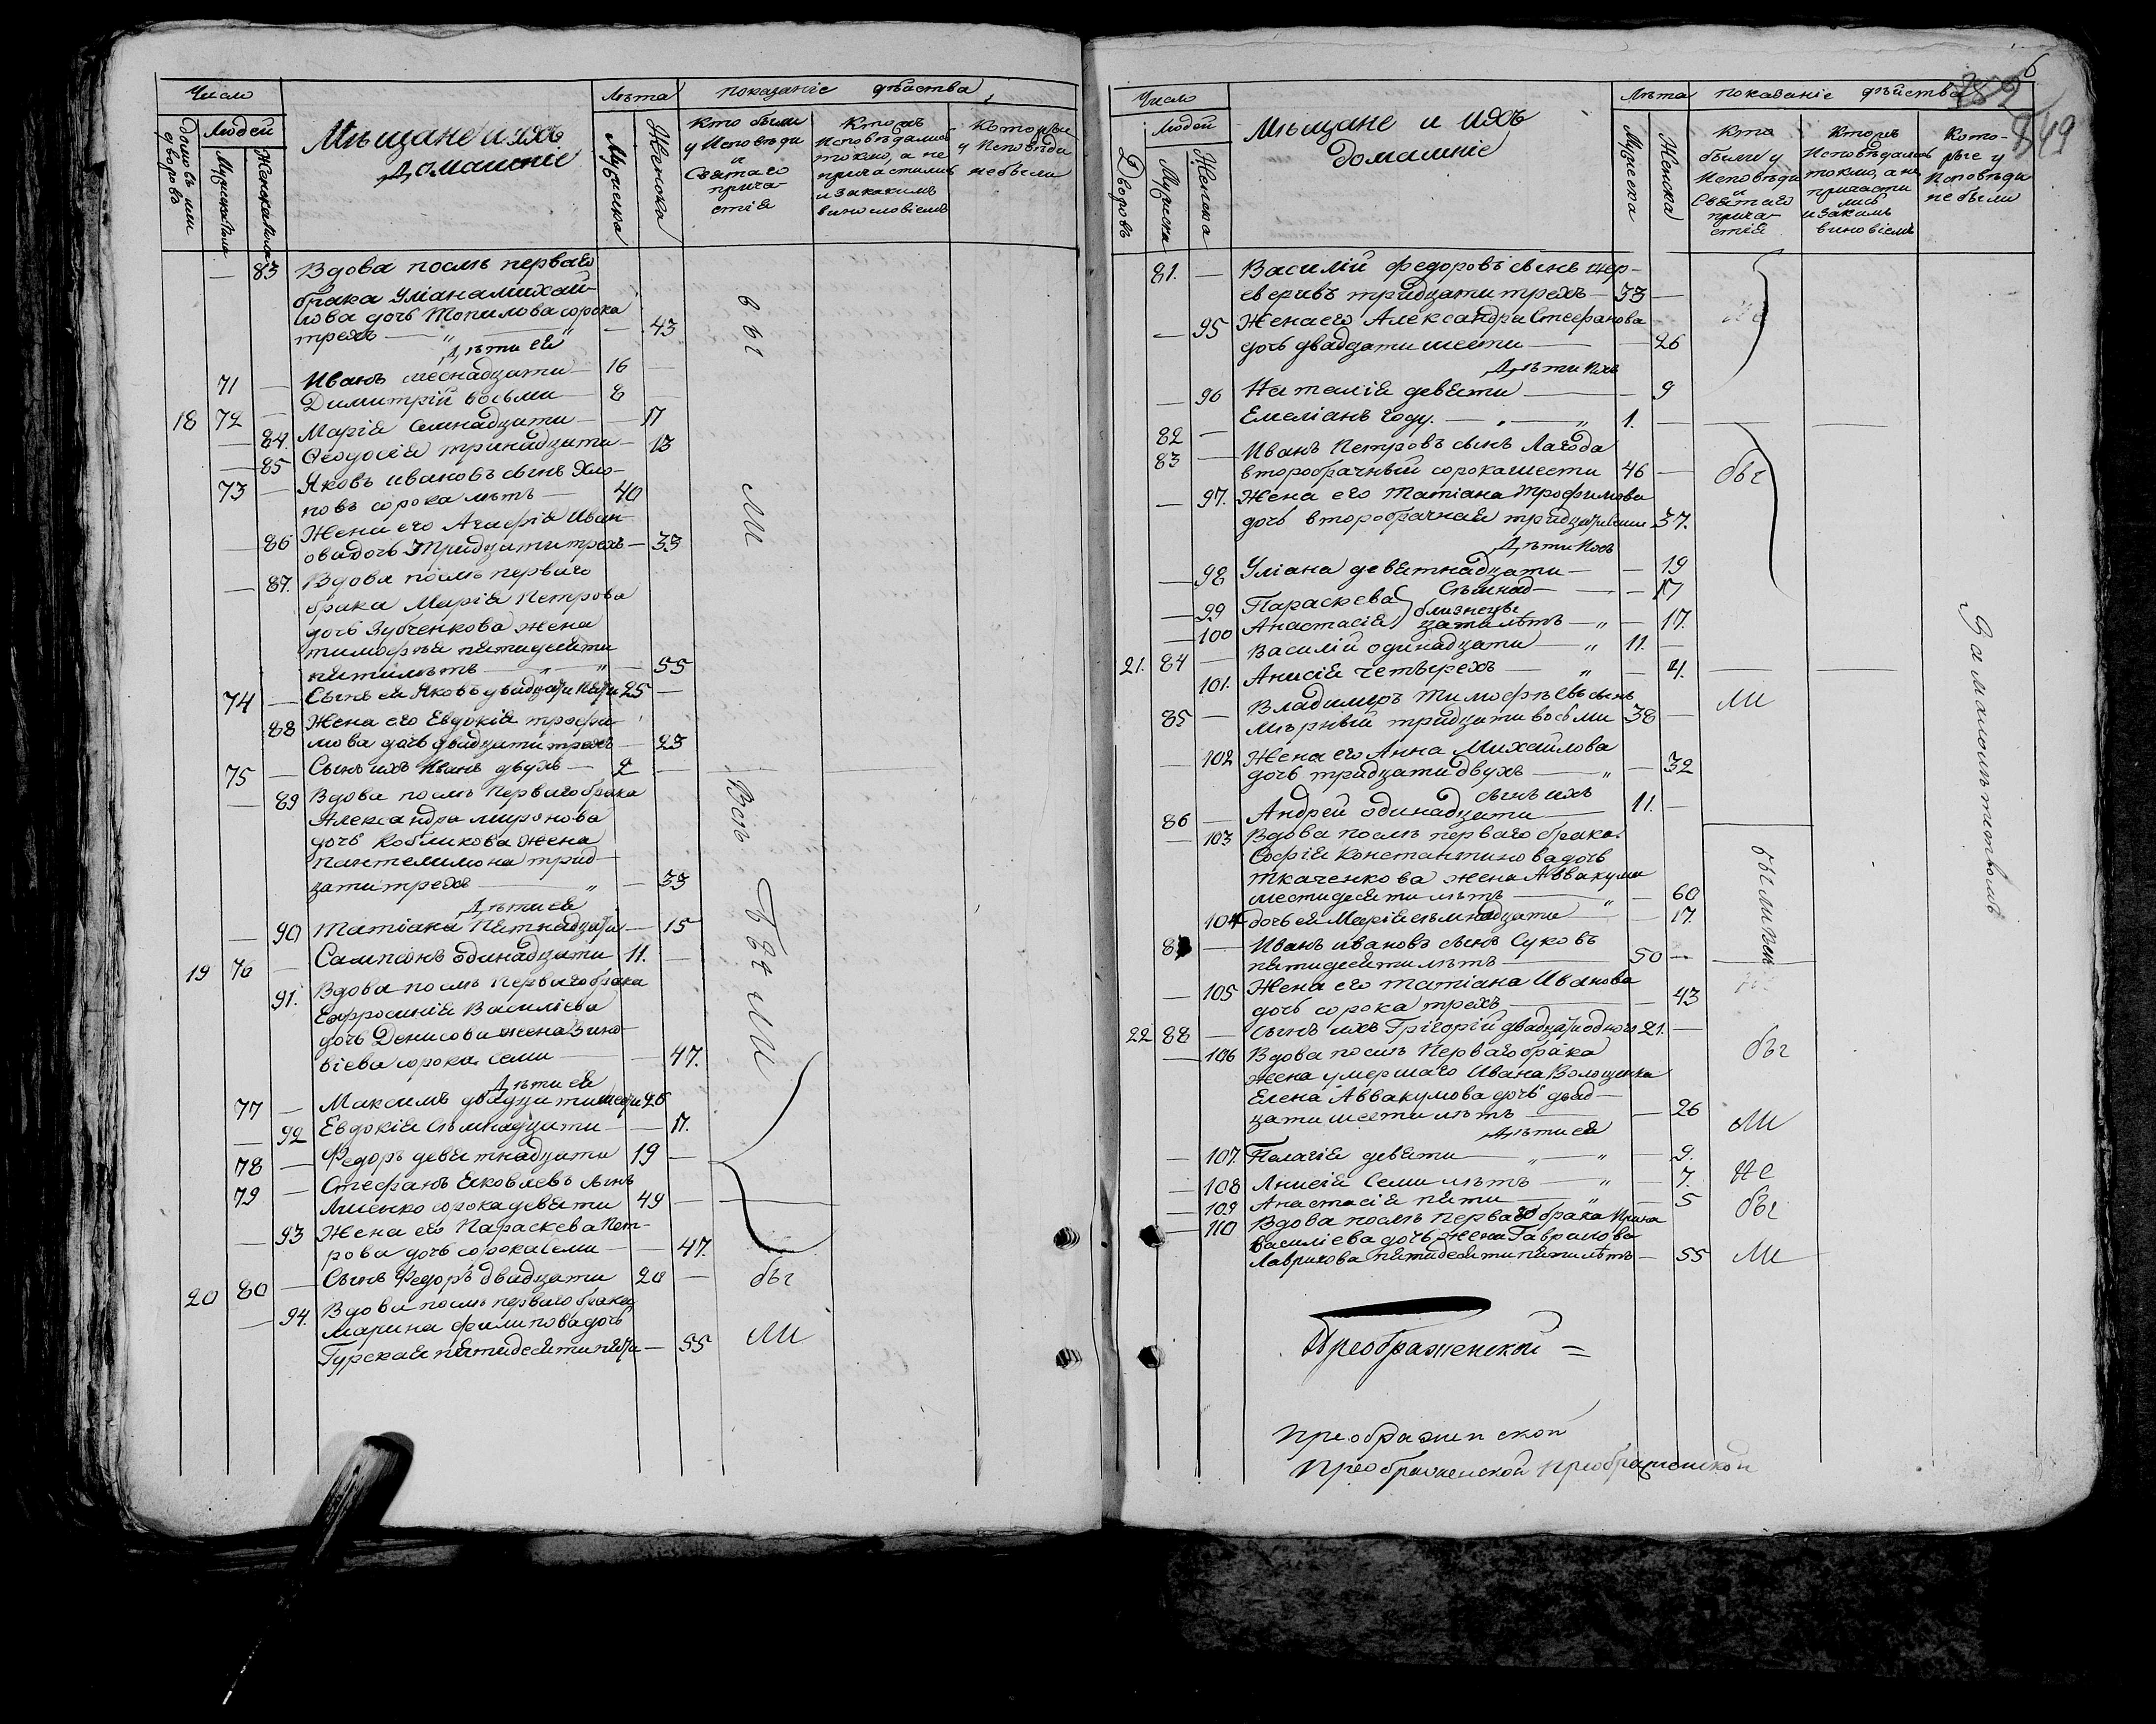 Число
Лѣта
показаніе дѣйства
домовъ или дворовъ
Людей
Мужеска
Женска
Мѣщане и ихъ
Домашніе
Мужеска
Женска
Кто были
у Исповѣди
и
Святаго
прича-
стія
Кто
Исповѣдались
токмо, а не
причастились
и за какимъ
винословіемъ
Которые
у Исповѣди
не были
— 83 Вдова послѣ перваго
брака Уліана Михай-
лова дочь Топилова сорока
трехъ — „ „ — 43
Дѣти ея
71 — Иванъ шеснадцати 16 —
18 72 — Димитрій восьми 8 —
— 84. Марія семнадцати — 17
— 85 Ѳеодосія тринадцати — 13
73 — Яковъ Ивановъ сынъ Хло-
повъ сорока лѣтъ — 40
— 86 Жена его Агафія Иван-
ова дочь тридцати трехъ — 33
— 87. Вдова послѣ перваго
брака Марія Петрова
дочь Зубченкова жена
Тимофѣя пятидесяти
пяти лѣтъ — „ „ — 55
74 — Сынъ ея Яковъ двадцати пяти 25 —
88 Жена его Евдокія Трофи-
мова дочь двадцати трехъ — 23
75 — Сынъ ихъ Иванъ двухъ — 2 —
— 89 Вдова послѣ перваго брака
Александра Миронова
дочь Кобликова жена
Пантелимона трид-
цати трехъ — „ — 33
Дѣти ея
— 90 Татіана пятнадцати — 15
19 76 — Сампсонъ одинадцати 11. —
91. Вдова послѣ перваго брака
Евфросинія Василіева
дочь Денисова жена Зино-
віева сорока семи — 47.
Дѣти ея
77 — Максимъ двадцати шести 26
— 92 Евдокія семнадцати — 17.
78 — Федоръ девятнадцати 19 —
79 — Стефанъ Яковлевъ сынъ
сорока девяти 49 —
— 93 Жена его Параскева Пет-
рова дочь сорока семи — 47.
20 80 — Сынъ Федоръ двадцати 20 —
— 94. Вдова послѣ перваго брака
Марина Филипова дочь
Гурская пятидесяти пяти — 55
бы
ли
Всѣ
были
бы
ли
6
849
Число
Лѣта
показаніе дѣйства
Дворовъ
Людей
Мужеска
Женска
Мѣщане и ихъ
домашніе
Мужеска
Женска
Кто
были у
Исповѣди
и
Святаго
прича-
стія
Кто
Исповѣдались
токмо, а не
причасти
лись
и за какимъ
Кото-
рые у
Исповѣди
не были
81. — Василій Федоровъ сынъ
тридцати трехъ — 33 —
— 95 Жена его Александра Стефанова
дочь двадцати шести — 26
Дѣти ихъ
— 96 Наталія девяти — 9
82 — Емеліанъ году. — „ 1. —
83 — Иванъ Петровъ сынъ Лагода
второбрачный сорока шести 46 —
— 97. Жена его Татіана Трофимова
дочь второбрачная тридцати семи 37.
Дѣти ихъ
— 98 Уліана девятнадцати — 19
— 99 Параскева Сѣмнад- — 17
близнецы
— 100 Анастасія цати лѣтъ — „ — 17.
21. 84 — Василій одинадцати — „ 11. —
101. Анисія четырехъ — „ — 4.
85 — Владимиръ Тимофѣевъ сынъ
Мѣрный тридцати восьми 38 —
— 102 Жена его Анна Михайлова
дочь тридцати двухъ — „ — 32
сынъ ихъ
86 — Андрей одинадцати 11. —
— 103 Вдова послѣ перваго брака
Софія Константинова дочь
Ткаченкова жена Аввакума
шестидесяти лѣтъ — „ — 60
104 дочь ея Марія сѣмнадцати — 17.
87 — Иванъ Ивановъ сынъ Суковъ
пятидесяти лѣтъ — 50 —
— 105 Жена его Татіана Иванова
дочь сорока трехъ — 43
22 88 — Сынъ ихъ Григорій двадцати одного 21. —
— 106 Вдова послѣ перваго брака
жена умершаго Ивана Волощенка
Елена Аввакумова дочь двад-
цати шести лѣтъ — 26
Дѣти ея
— 107. Пелагія девяти — „ „ — 9.
— 108 Анисія семи лѣтъ — „ — 7.
— 109 Анастасія пяти — „ — 5
— 110 Вдова послѣ перваго брака Ирина
Василіева дочь жена Гаврилова
Лаврикова пятидесяти пяти лѣтъ — 55
бы
ли
были
бы
ли
не
бы
ли
За малолѣтствомъ
Преображенской =
преображенской
преображенской преображенской